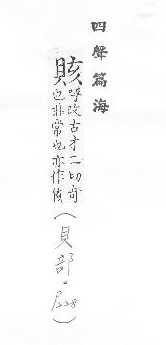 四聲篇海
賅呼改古才二切奇
也非常也亦作侅
(貝部。P228)